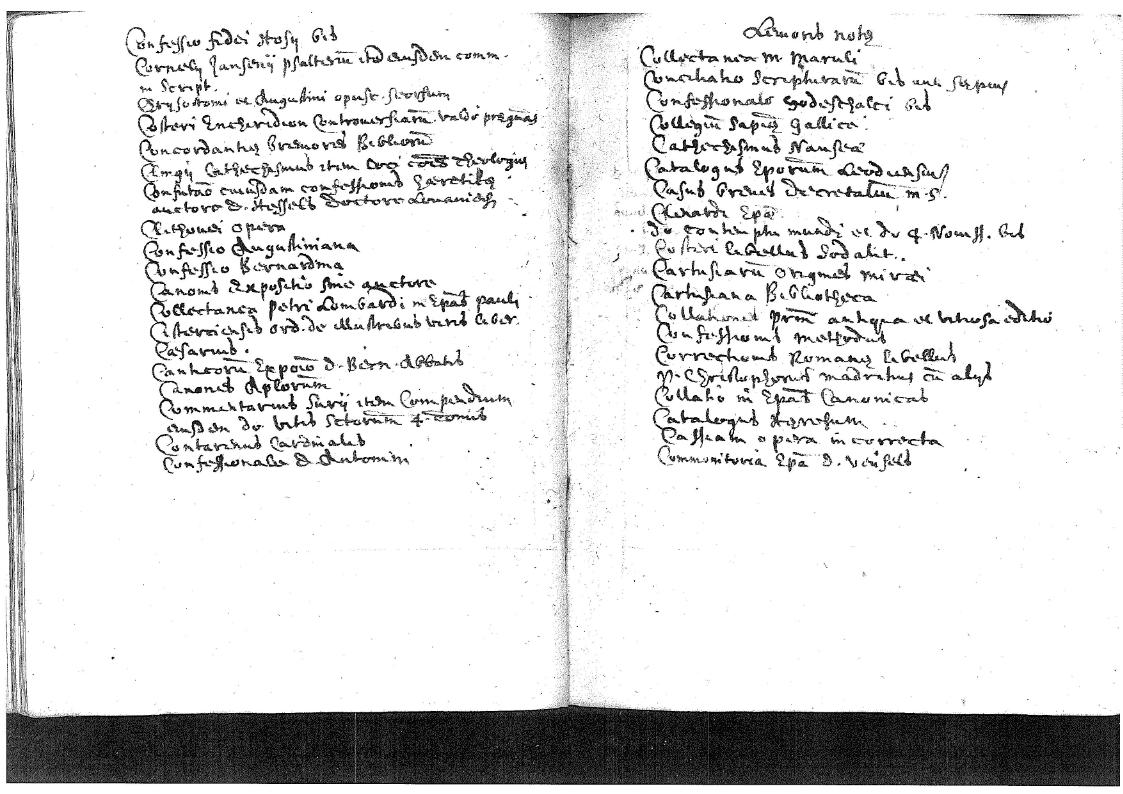 Confessio fidei Hosij bis
Cornelij Jansenij psalteriũ itẽ eiusdem comm.
in Script.
Chrysostomi et Augustini opusc. seorsum
Costeri Enchiridion Controuersiarũ valdè
Concordantiæ breuiores Bibliorũ
Cathechismus item Loci cões Theologici
Confutaõ cuiusdam confessionis hæreticæ
auctore D. Hessels doctore Louaniesi
Rithouei opera
Confessio Augustiniana
Confessio Bernardina
Canonis Expositio sine auctore
Collectanea Petri Lombardi in Epãs Pauli
Cisterciensis ord. de illustribus viris liber.
Cæsarius.
Canticorũ Expoiõ D. Bern. Abbatis
Canones Aplorũm
Commentarius Surij item Compendium
eiusdem de vitis Sctorũm 4. tomis
Contarenus Cardinalis
Confessionale D. Antonini
Leuioris notæ
Collectanea M. Maruli
Conciliatio Scripturarũ bis aut sæpius
Confessionale Godeschalci bis
Collegiũ Sapiæ Gallicè
Cathechismus Nauseæ
Catalogus Eporũm Leodiensiũ
Casus breues decretaliũ m.s.
Clenardi Epã
de contemptu mundi et de 4. Nouiss. bis
Costeri libellus Sodalit.
Cartusiarũ origines Miræi
Cartusiana Bibliotheca
Collationes Prm̃ antiqua et vitiosa editio
Confessionis methodus
Correctionis Romanæ libellus
P. Christophorus Madritius cũ alijs
Collatio in Epãs Canonicas
Catalogus Hæresum
Cassiani opera incorrecta
Commonitoria Epã D.